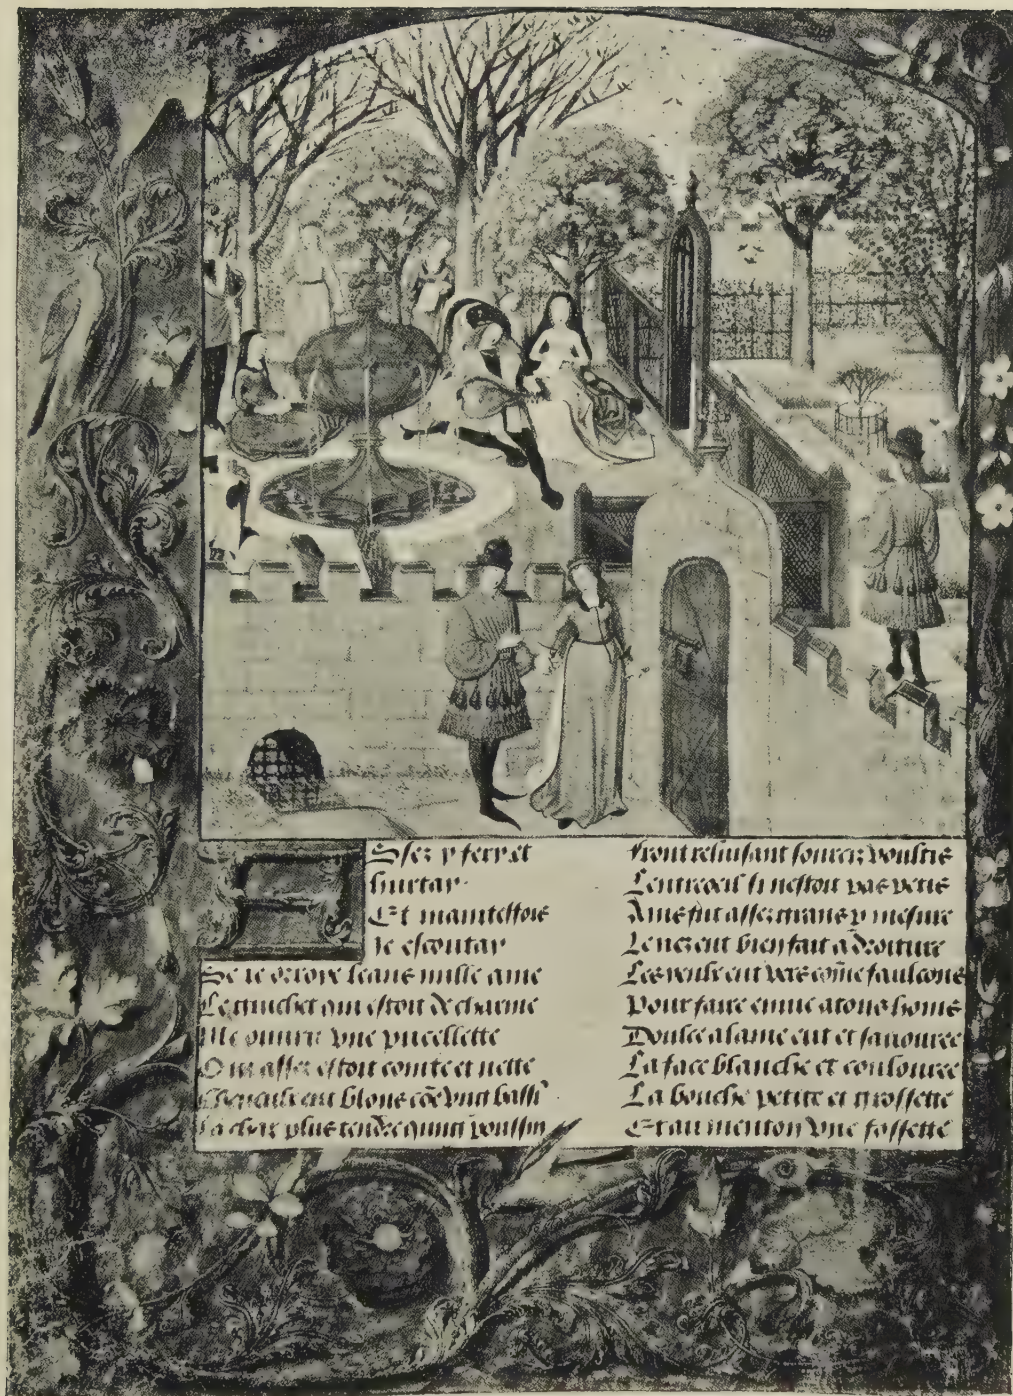 Assez y fery et
hurtay.
Et maintesfois
ie escoutay
Se ie orroye leans nulle ame
Le guichet qui estoit de charme
Me ouurit vne pucellette
Qui assez estoit cointe et nette
Cheueulx eut blons cõe vng bassĩ
La char plus tendre quung poussin
Front reluisant sourcis voultis
Lentreoeil si nestoit pas petis
Ains fut assez grans p mesure
Le nez eut bien fait a droiture
Les yeulx eut vers cõme faulcons
Pour faire enuie a tous homs
Doulce alaine eut et sauouree
La face blanche et coulouree
La bouche petite et grossette
Et au menton vne fossette